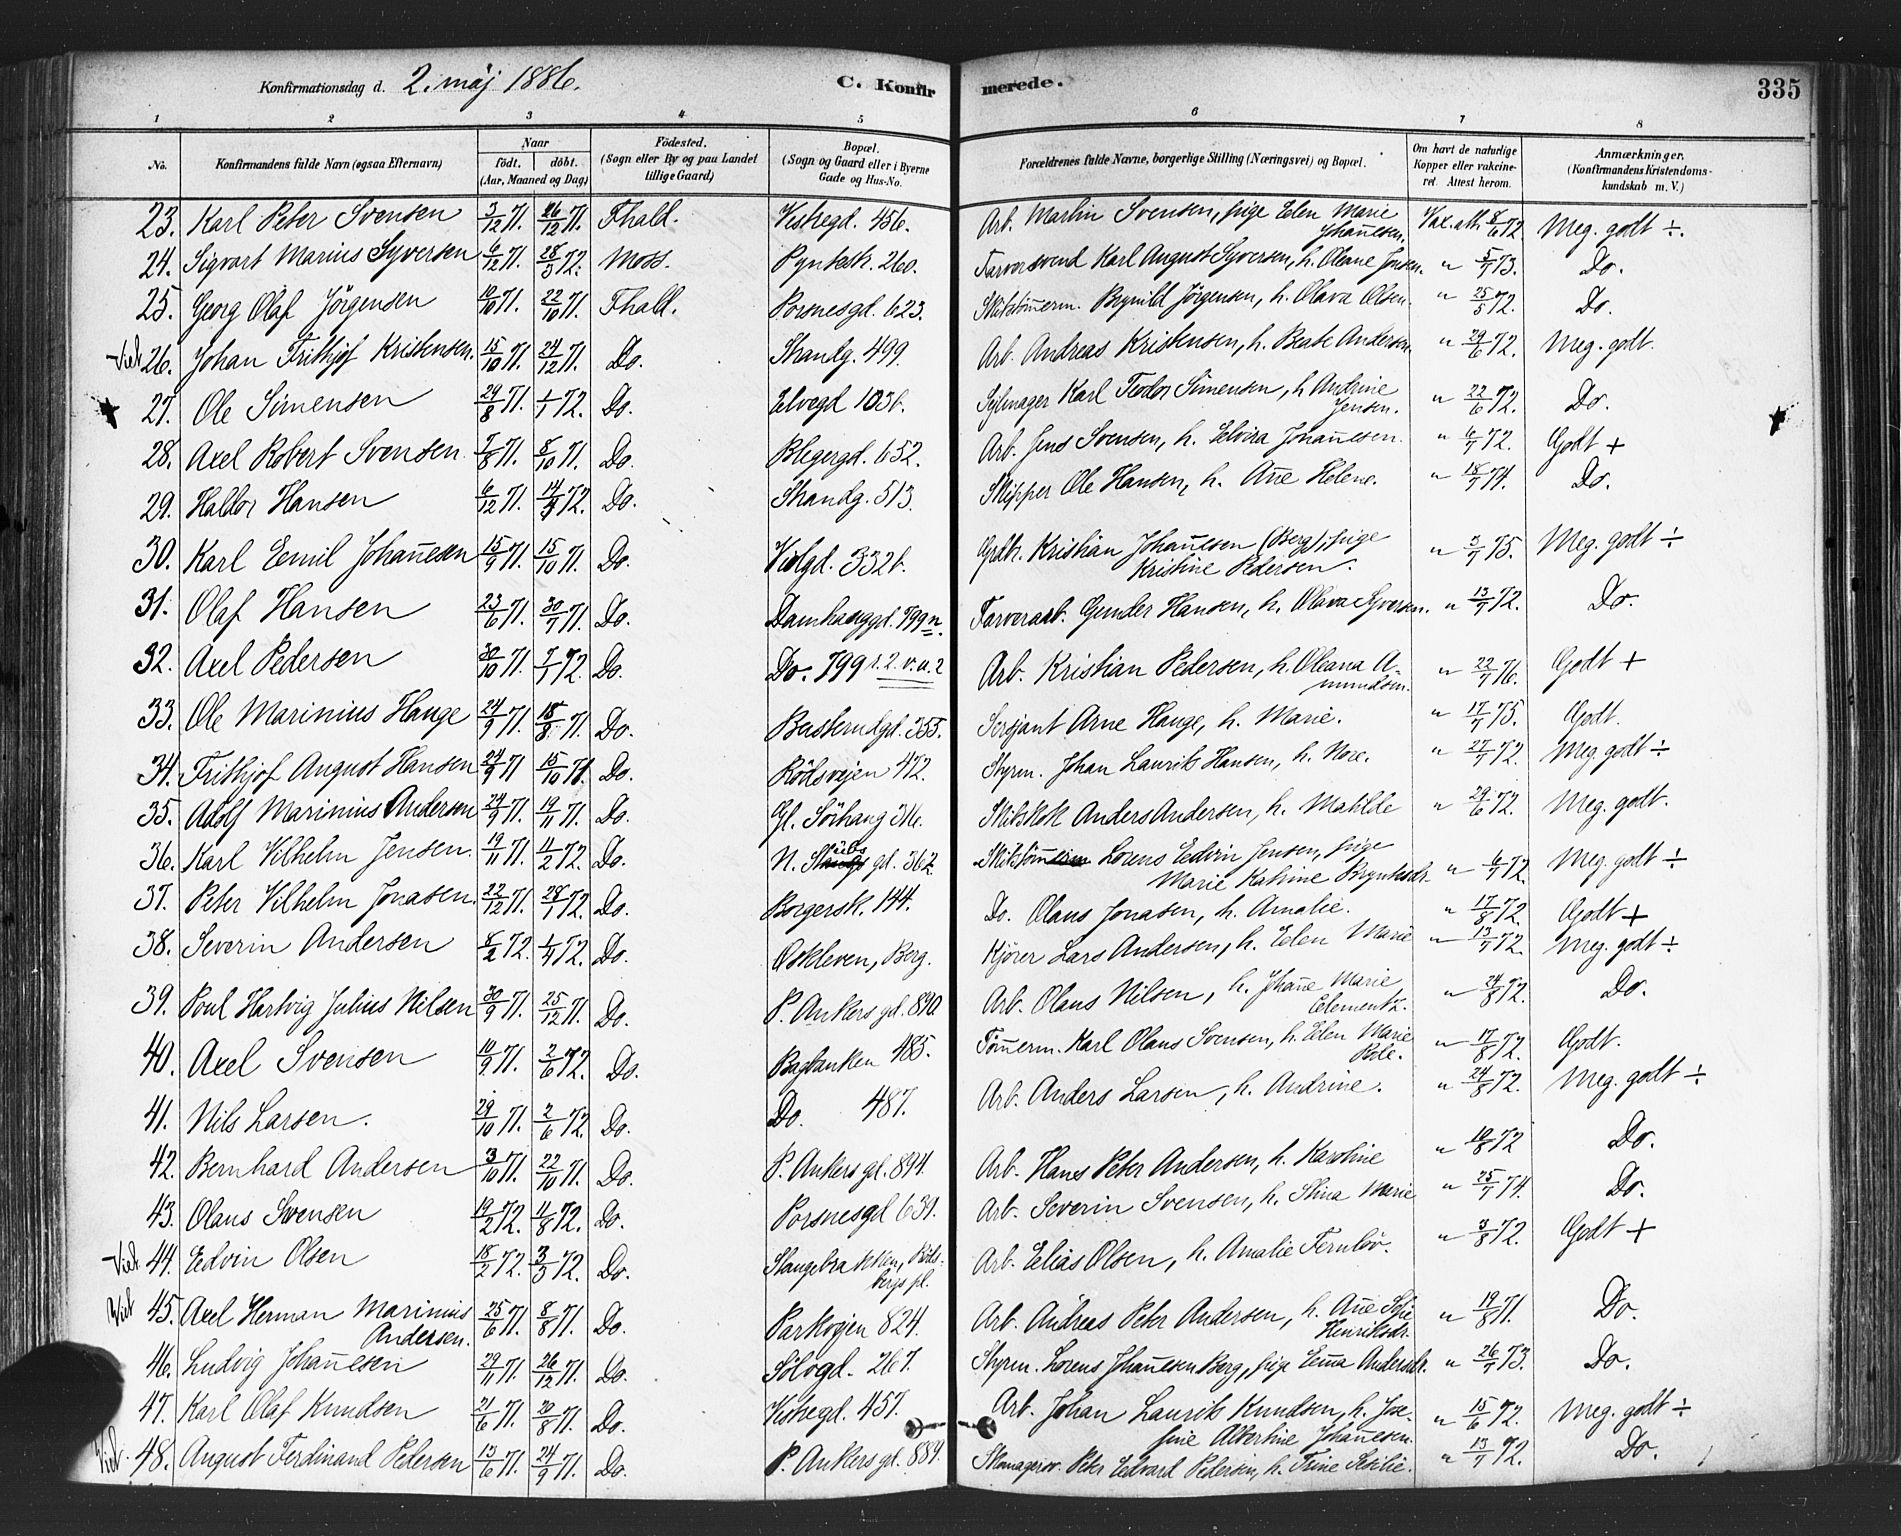 Konfirmationsdag d. 2. maj 1886. C. Konfirmerede. 335
1 2 3 4 5 6 7 8
No. Konfirmandens fulde Navn (ogsaa Efternavn) Naar født. døbt. (Aar, Maaned og Dag) Födested. (Sogn eller By og paa Landet tillige Gaard) Bopæl. (Sogn og Gaard eller i Byerne Gade og Hus-No. Forældrenes fulde Navne, borgerlige Stilling (Næringsvei) og Bopæl. Om havt de naturlige Kopper eller vakcineret. Attest herom. Anmærkninger. (Konfirmandens Kristendomskundskab m. V.)
23. Karl Peter Svensen 3/12 71. 26/12 71. Fhald. Vestregd. 456. Arb. Martin Svensen, pige Elen Marie Johan̄esen. Vax. att. 8/6 72 Meg. godt ÷.
24. Sigvart Marius Syversen 6/12 71. 28/3 72. Moss. Pyntestr. 260. Farversvend Karl August Syversen, h. Oleane Jensen. " 5/7 73. Do.
25. Georg Olaf Jörgensen 10/10 71. 22/10 71. Fhald. Porsnesgd. 623. Skibstöm̄erm. Brynild Jörgensen, h. Olava Olsen. " 25/5 72. Do.
26. Johan Frithjof Kristensen. 15/10 71. 24/12 71. Do. Strandg. 499. Arb. Andreas Kristensen, h. Beate Andersen. " 29/6 72. Meg. godt.
27. Ole Simensen 29/8 71. 1/1 72. Do. Elvegd 103b. Sejlmager Karl Teodor Simensen, h. Andrine Jensen. " 22/6 72. Do.
28. Axel Robert Svensen. 7/8 71. 8/10 71. Do. Blegergd. 652. Arb. Jens Svensen, h. Elvira Johan̄esen. " 6/7 72. Godt +
29. Haldor Hansen 6/12 71. 14/4 72. Do. Strandg. 513. Skipper Ole Hansen, h. An̄e Helene. " 18/7 74. Do.
30. Karl Emil Johan̄esen 15/9 71. 15/10 71. Do. Volgd. 332b. Grdbr. Kristian Johan̄esen (Berg), pige Kristine Pedersen. " 3/7 75. Meg. godt ÷
31. Olaf Hansen 23/6 71. 30/7 71. Do. Damhauggd. 799n. Farverarb. Gunder Hansen, h. Olava Syversen. " 13/7 72. Do.
32. Axel Pedersen 30/10 71. 7/1 72. Do. Do. 799 Arb. Kristian Pedersen, h. Oleana Amundsen. " 22/7 76. Godt +
33. Ole Marinius Hauge 24/7 71. 18/8 71. Do. Basterudgd. 355. Sersjant Arne Hauge, h. Marie. " 17/7 75. Godt.
34. Frithjof August Hansen 24/9 71 15/10 71. Do. Rödsvejen 472. Styrm. Johan Laurits Hansen, h. Nore. " 27/7 72. Meg. godt ÷
35. Adolf Marinius Andersen 24/9 71. 19/11 71. Do. Gl. Sörhaug 316. Skibskok Anders Andersen, h. Matilde " 29/6 72. Meg. godt.
36. Karl Vilhelm Jensen. 19/11 71. 11/2 72. Do. N. gd. 362 Lorens Edvin Jensen, pige Marie Katrine Bryntesdr. " 6/7 72 Meg. godt ÷
37. Peter Vilhelm Jonasen. 22/12 71. 28/1 72. Do. Borgerst. 144. Do. Olaus Jonasen, h. Amalie. " 17/8 72. Godt +
38. Severin Andersen 8/2 72. 1/4 72. Do. Oskleven, Berg. Kjörer Lars Andersen, h. Elen Marie " 13/7 72. Meg. godt ÷
39. Poul Hartvig Julius Nilsen 30/9 71. 25/12 71. Do. P. Ankers gd. 890. Arb. Olaus Nilsen, h. Johan̄e Marie Clementz. " 24/8 72. Do.
40. Axel Svensen 10/9 71. 2/6 72. Do. Bagbanken 485. Töm̄erm. Karl Olaus Svensen, h. Elen Marie " 17/8 72. Godt.
41. Nils Larsen. 29/10 71. 2/6 72. Do. Do. 487. Arb. Anders Larsen, h. Andrine. " 24/8 72. Meg. godt ÷
42. Bernhard Andersen 3/10 71. 22/10 71. Do. P. Ankers gd. 894. Arb. Hans Peter Andersen, h. Karoline " 10/8 72 Do.
43. Olaus Svensen 19/2 72. 11/8 72. Do. Porsnesgd 631. Arb. Severin Svensen, h. Stina Marie " 25/7 74. Do.
44. Edvin Olsen 18/2 72. 3/3 72. Do. Stangebrakken, Rödsbergs pl. Arb. Elias Olsen, h. Amalie Fernlöv. " 3/8 72. Godt +
45. Axel Herman Marinius Andersen. 25/6 71. 8/8 71. Do. Parkvejen 824. Arb. Andreas Peter Andersen, h. An̄e Sofie Henriksdr. " 19/8 71. Do.
46. Ludvig Johan̄esen 29/11 71. 26/12 71. Do. Sölvgd. 267. Styrm. Lorens Johan̄esen Berg, pige Em̄a Andersdr. " 26/7 73. Do.
47. Karl Olaf Knudsen 21/6 71. 20/8 71. Do. Vestregd. 457. Arb. Johan Laurits Knudsen, h. Josefine Albertine Johan̄esen. " 15/6 72. Meg. godt ÷
48. August Ferdinand Pedersen 13/6 71. 24/9 71. Do. P. Ankers gd. 884. Skomagersv. Peter Edvard Pedersen, h. Trine Sesilie. " 13/7 72. Do.